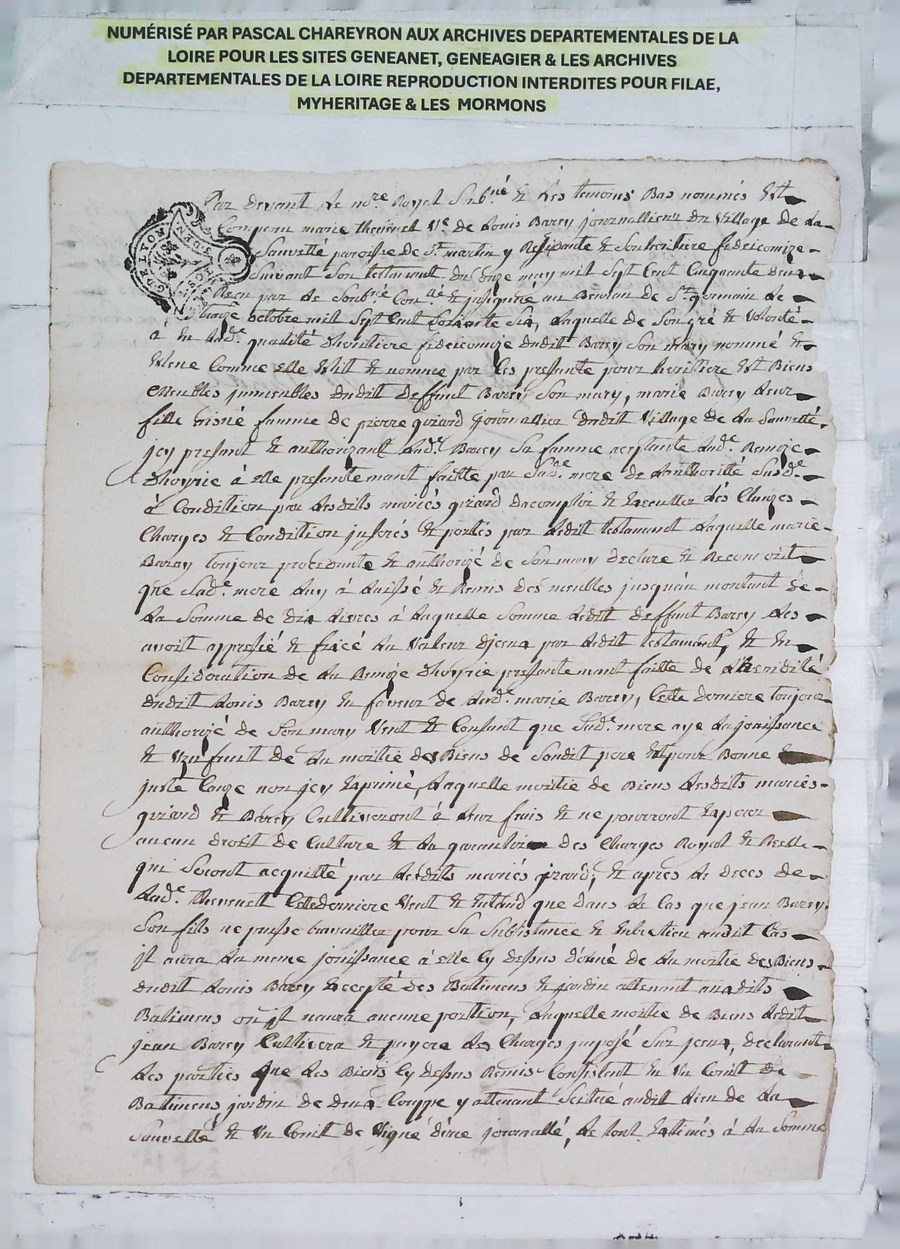 NUMÉRISÉ PAR PASCAL CHAREYRON AUX ARCHIVES DEPARTEMENTALES DE LA
LOIRE POUR LES SITES GENEANET, GENEAGIER & LES ARCHIVES
DEPARTEMENTALES DE LA LOIRE REPRODUCTION INTERDITES POUR FILAE,
MYHERITAGE & LES MORMONS
Par devant Le nre Royal Sub.né & Les temoins Bas nommés Est
Comparu marie thevenet Ve de Louis Barey journallier du Village de La
Sauvetté paroisse de St martin y Residante & Son heritiere fideicomize
Suivant Son testament du onze may mil Sept Cent Cinquante deux
Receu par Le Soub.né & insignué au Bureau de St germain Le
octobre mil Sept Cent Soixante Six, Laquelle de Son gré & Volonté
a en Lade qualité d'heritiere fideicomize dudit Barey Son mary nommé &
Eslene Comme elle Elit & nomme par Ces presante pour heritiere Est Biens
Meubles immeubles dudit deffunt Barey Son mary, marie Barey Leur
fille femme de pierre girard journallier dudit Village de La Sauvetté
jcy presant & authorizant Lade Barey Sa femme acceptante Lade Remize
d'hoyrie à elle presantement faitte par Sade mere de L'authorité Susde
à Condition par Lesdits mariés girard dacomplir & Executter Les Clauzes
Charges & Condition inserés & portés par Ledit testament Laquelle marie
Baray toujour procedante & authorizé de Son mary declare & Reconnoit
que Sade mere Luy à Laissé & Remis des meubles jusquau montant de
La Somme de dix Livres à Laquelle Somme Ledit deffunt Barey Les
avoit appresié & fixcé La Valeur djceux par Ledit testament, & en
Consideration de La Remize d'hoyrie presantement faitte de L'heridité
dudit Louis Barey en faveur de Lade marie Barey, Cette derniere toujour
authorizé de Son mary Veut & Consant que Sade mere aye La jouissance
& Uzufruit de La moitié des Biens de Sondit pere Est pour Bonne &
juste Cauze non jcy Exprimé, Laquelle moitié de Biens Lesdits mariés
girard & Barey Cultiveront à Leur frais & ne pourront Exiger
aucun droit de Culture & La garantir des Charges Royal & Reelle
qui Seront acquitté par Lesdits mariés girard, & après Le deces de
Lade thevenet Cette derniere Veut & Entand que dans Le Cas que jean Barey
Son fils ne puisse travailler pour Sa Subsistance & Entretien audit Cas
jl aura La meme jouissance à elle Cy dessus donné de La moitié des Biens
dudit Louis Barey Excepté des Batimens & jardin attenant auxdits
Batimens ou jl naura aucune portion, Laquelle moitié de Biens Ledit
jean Barey Cultivera & payera Les Charges imposé Sur jceux, declarant
Les parties que Les Biens Cy dessus Remis Consistent en Un Comit de
Batimens jardin de deux Couppe y attenant Scitué audit Lieu de La
Sauvetté & Un Comit de Vigne d'une journallé, Le tout Estimés à La Somme